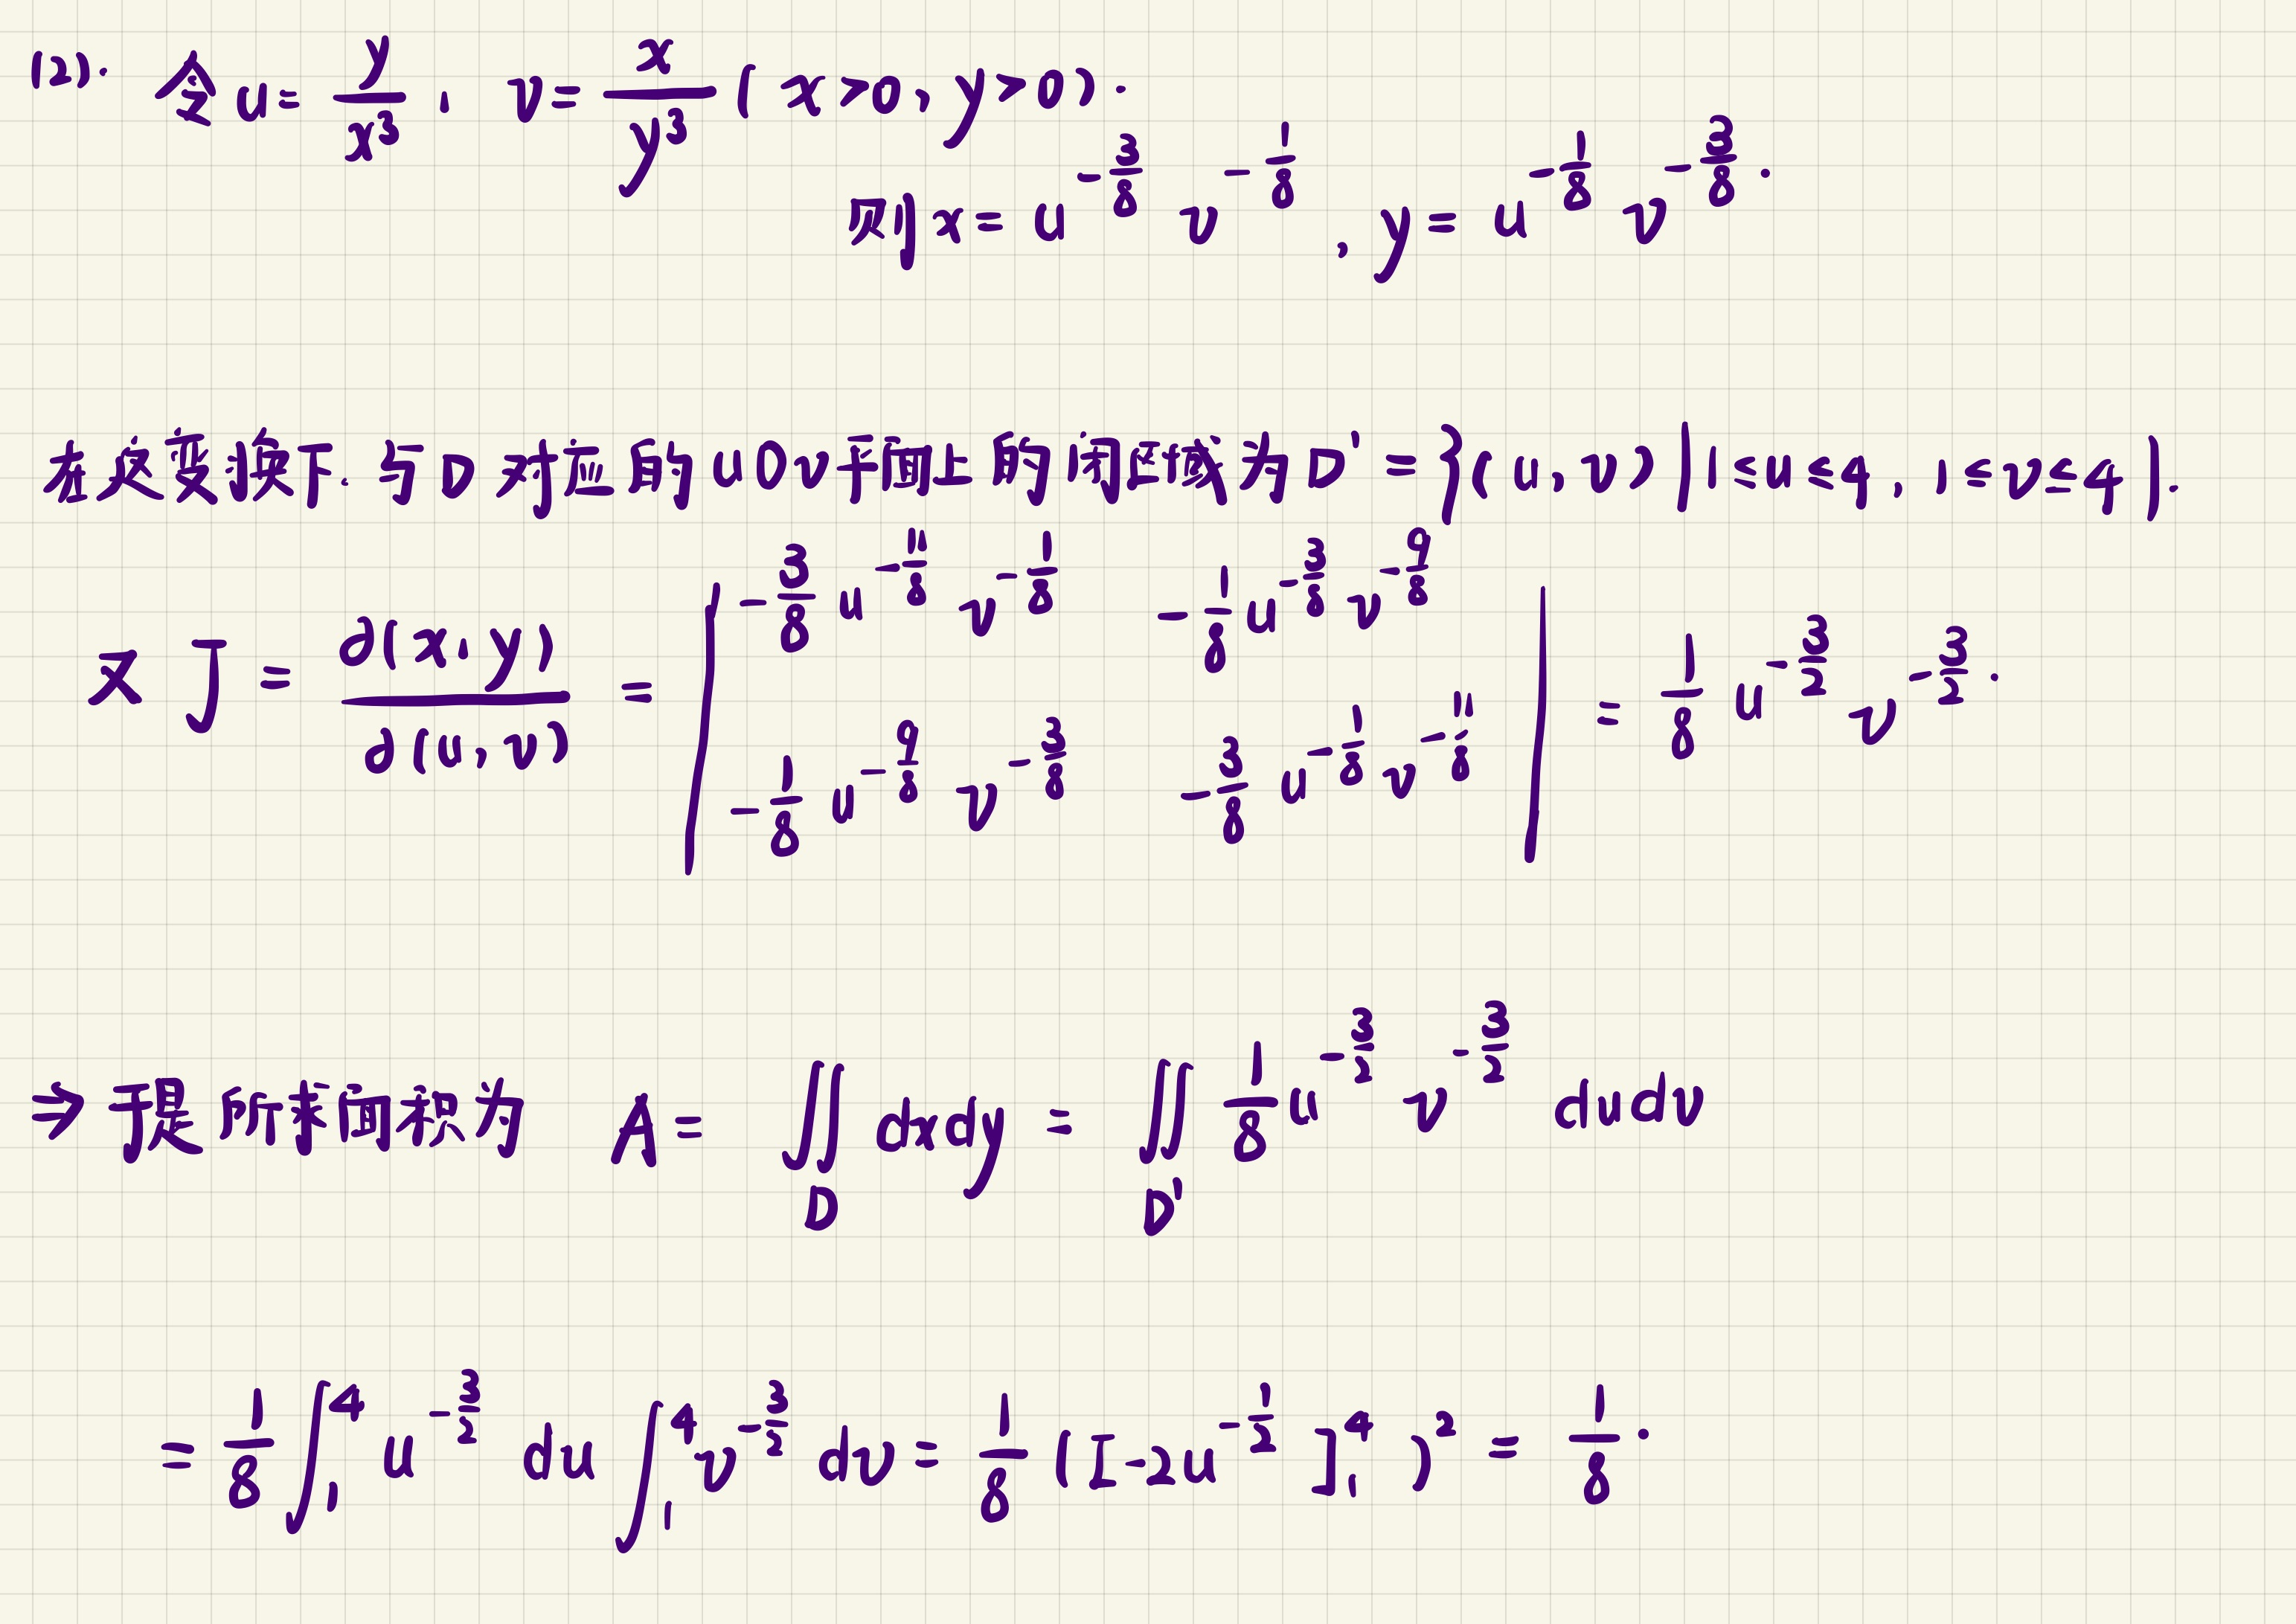 (2). 令 u = y/x³, v = x/y³ (x>0, y>0).
则 x = u^(-3/8) v^(-1/8), y = u^(-1/8) v^(-3/8).
在这变换下. 与 D 对应的 uOv 平面上的闭区域为 D' = {(u, v) | 1≤u≤4, 1≤v≤4}.
又 J = ∂(x, y)/∂(u, v) = | -3/8 u^(-11/8) v^(-1/8)  -1/8 u^(-3/8) v^(-9/8) ; -1/8 u^(-9/8) v^(-3/8)  -3/8 u^(-1/8) v^(-11/8) | = 1/8 u^(-3/2) v^(-3/2).
⇒ 于是所求面积为 A = ∬_D dxdy = ∬_D' 1/8 u^(-3/2) v^(-3/2) dudv
= 1/8 ∫₁⁴ u^(-3/2) du ∫₁⁴ v^(-3/2) dv = 1/8 ([-2u^(-1/2)]₁⁴)² = 1/8.